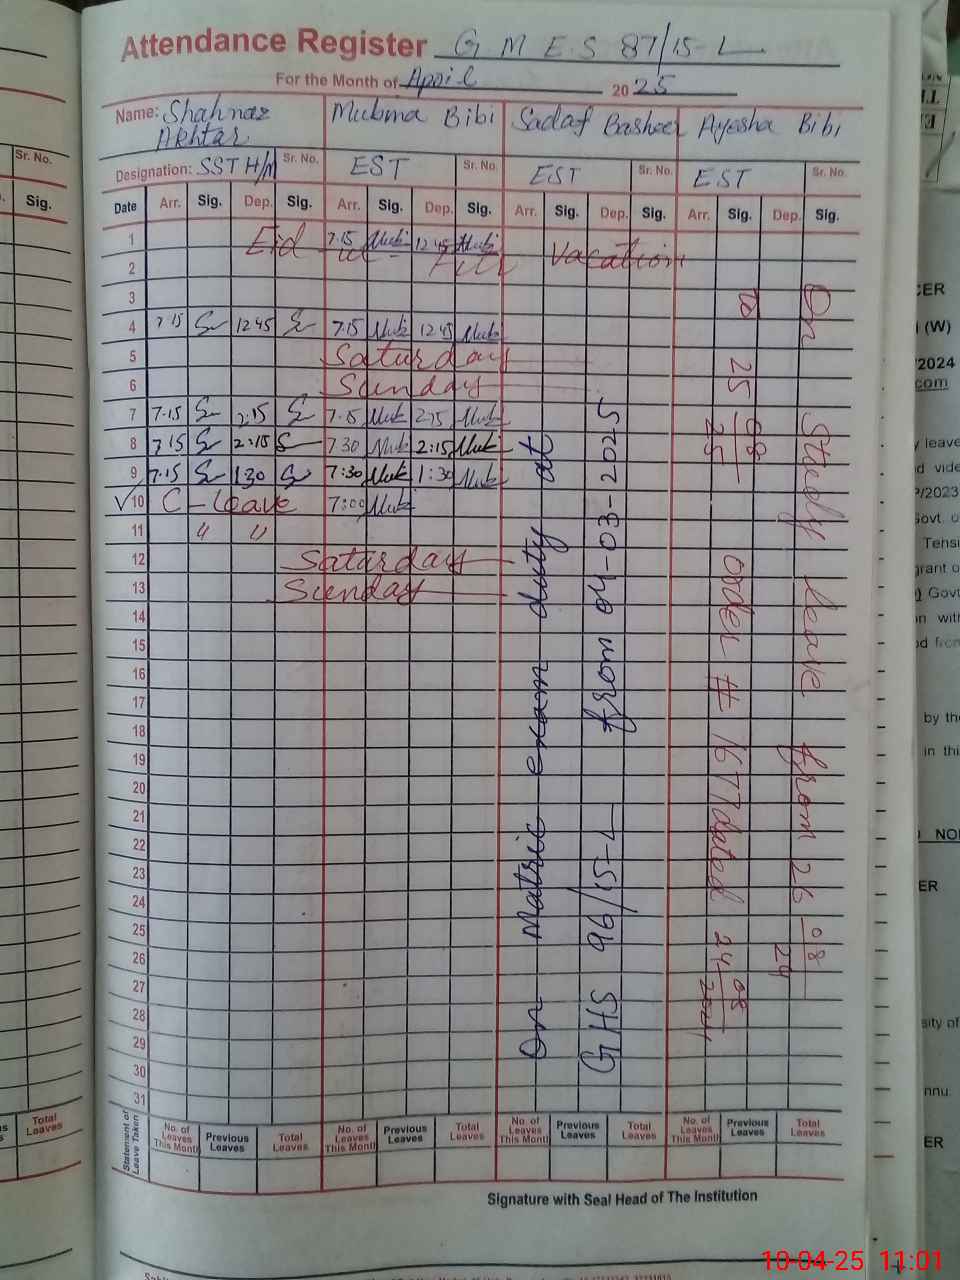 Attendance Register G M E S 87/15-L
For the Month of April 2025
Name: Shahnaz Akhtar Mubma Bibi Sadaf Basheer Ayesha Bibi
Designation: SST H/M Sr. No. EST Sr. No. EST Sr. No. EST Sr. No.
Date Arr. Sig. Dep. Sig. Arr. Sig. Dep. Sig. Arr. Sig. Dep. Sig. Arr. Sig. Dep. Sig.
1 7.15 12 45
Eid ul-Fitr Vacation
2
3
4 7 15 12 45 7.15 12 45
5 Saturday
6 Sunday
7 7.15 2:15 7.15 2:15
8 7 15 2:15 7 30 2:15
9 7.15 1 30 7:30 1:30
✓10 C-leave 7:00
11 " "
12 Saturday
13 Sunday
14
15
16
17
18
19
20
21
22
23
24
25
26
27
28
29
30
31
On Matric exam duty at
GHS 96/15-L from 04-03-2025
On Study leave from 26 08 24
to 25 08 25 order # 1677 dated 24 08 2024
Statement of Leave Taken
No. of Leaves This Month Previous Leaves Total Leaves No. of Leaves This Month Previous Leaves Total Leaves No. of Leaves This Month Previous Leaves Total Leaves No. of Leaves This Month Previous Leaves Total Leaves
Signature with Seal Head of The Institution
Sr. No.
Sig.
Total Leaves
CER
(W)
2024
com
leave
d vide
/2023
Govt. o
Tensi
grant o
Govt
n with
d from
by the
in this
NO
ER
sity of
nnu
ER
10-04-25 11:01